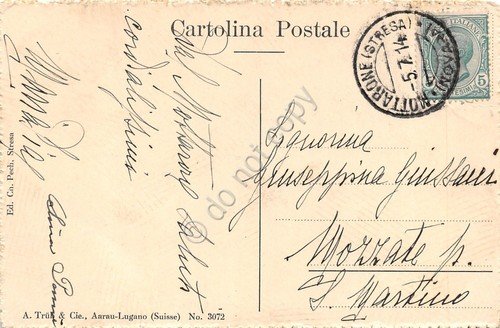 Cartolina Postale
MOTTARONE (STRESA)
(NOVARA)
5.7.14
POSTE ITALIANE
5
Dal Mottarone saluti
cordialissimi
Ed. Co. Pech. Stresa
Signorina
Giuseppina Giussani
Mozzate p.
S. Martino
A. Trüb & Cie., Aarau-Lugano (Suisse) No. 3072
do not copy